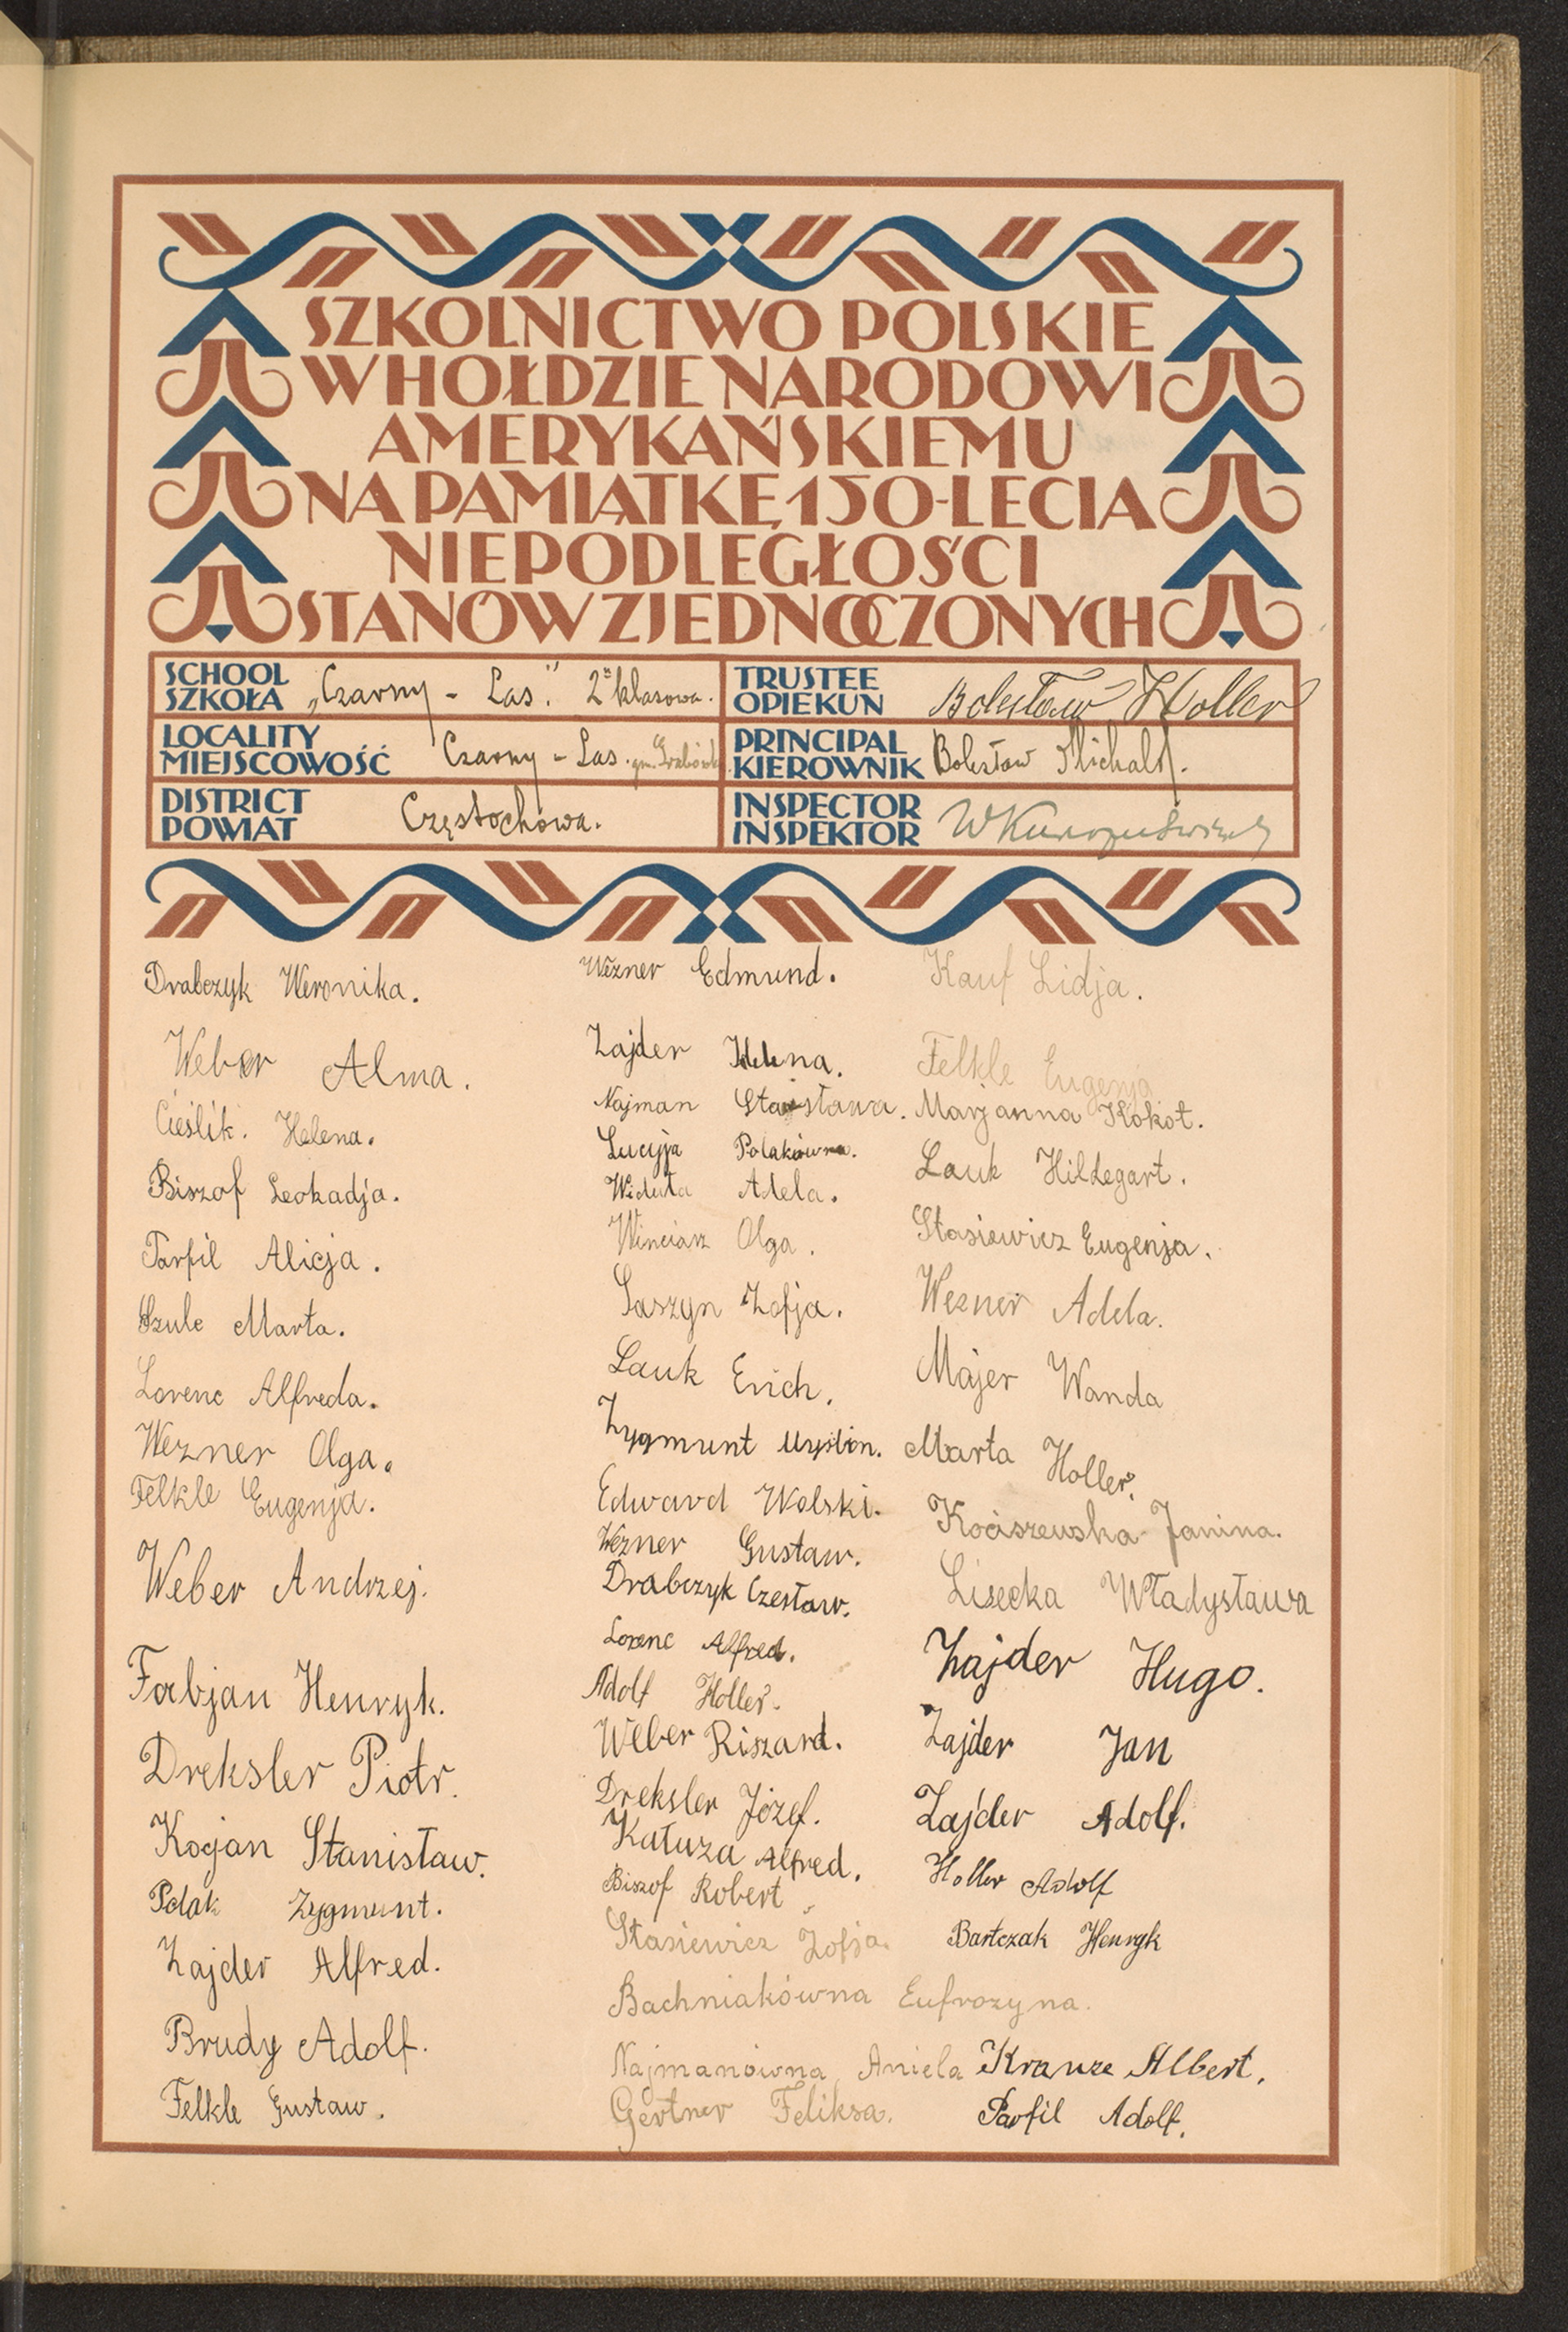 SZKOLNICTWO POLSKIE
W HOŁDZIE NARODOWI
AMERYKAŃSKIEMU
NA PAMIĄTKĘ 150-LECIA
NIEPODLEGŁOŚCI
STANÓW ZJEDNOCZONYCH
SCHOOL
SZKOŁA
„Czarny - Las." 2 klasowa.
TRUSTEE
OPIEKUN
Bolesław Holler
LOCALITY
MIEJSCOWOŚĆ
Czarny - Las. gm. Grabówka
PRINCIPAL
KIEROWNIK
Bolesław
DISTRICT
POWIAT
Częstochowa.
INSPECTOR
INSPEKTOR
Drabczyk Weronika.
Weber Alma.
Cieślik. Helena.
Biszof Leokadja.
Parfil Alicja.
Szulc Marta.
Lorenc Alfreda.
Wezner Olga.
Felkle Eugenja.
Weber Andrzej.
Fabjan Henryk.
Dreksler Piotr.
Kocjan Stanisław.
Polak Zygmunt.
Zajder Alfred.
Brudy Adolf.
Felkle Gustaw.
Wezner Edmund.
Zajder Helena.
Najman Stanisława.
Lucyja Polakówna.
Widuta Adela.
Winciarz Olga.
Laszyn Zofja.
Lauk Erich.
Zygmunt
Edward Wolski.
Wezner Gustaw.
Drabczyk Czesław.
Lorenc Alfred.
Adolf Holler.
Weber Riszard.
Dreksler Józef.
Kałuza Alfred.
Biszof Robert
Stasiewicz Zofja.
Bachniakówna Eufrozyna.
Najmanówna Aniela
Gertner Feliksa.
Kauf Lidja.
Felkle Eugenja
Marjanna Kokot.
Lauk Hildegart.
Stasiewicz Eugenja.
Wezner Adela.
Majer Wanda
Marta Holler.
Kociszewska Janina.
Lisecka Władysława
Zajder Hugo.
Zajder Jan
Zajder Adolf.
Holler Adolf
Bartczak Henryk
Krauze Albert.
Parfil Adolf.